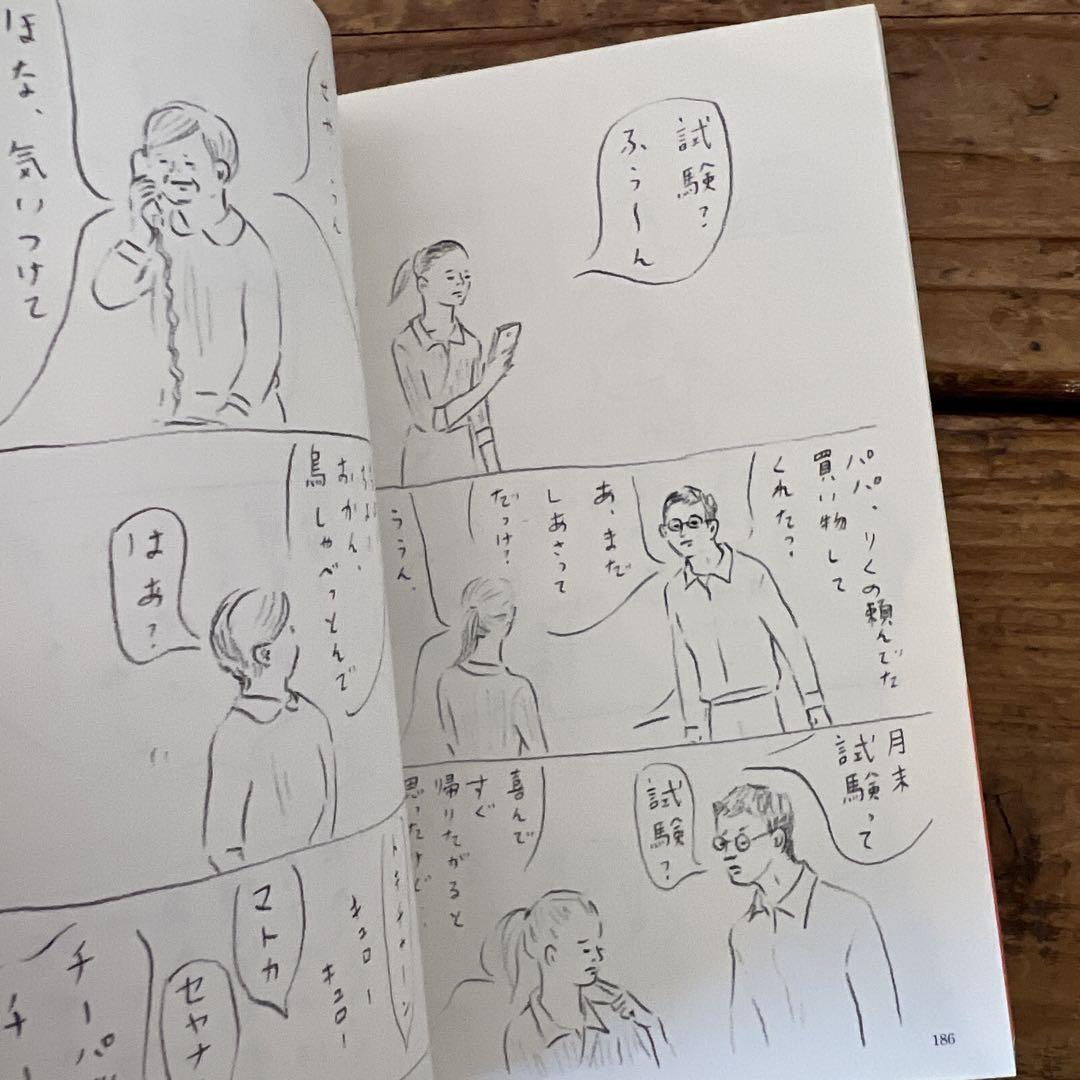 試験?
ふぅ〜ん
パパ、りくの頼んでた
買い物して
くれたっ
あ、まだ
しあさって
だっけ?
ううん、
月末
試験って
試験?
喜んで
すぐ
帰りたがると
思ったけど…
ほな、気いつけて
おかん、
鳥しゃべっとんで
はあ?
キュロー
キュロー
マトカ
セヤナ
チーパ
チー